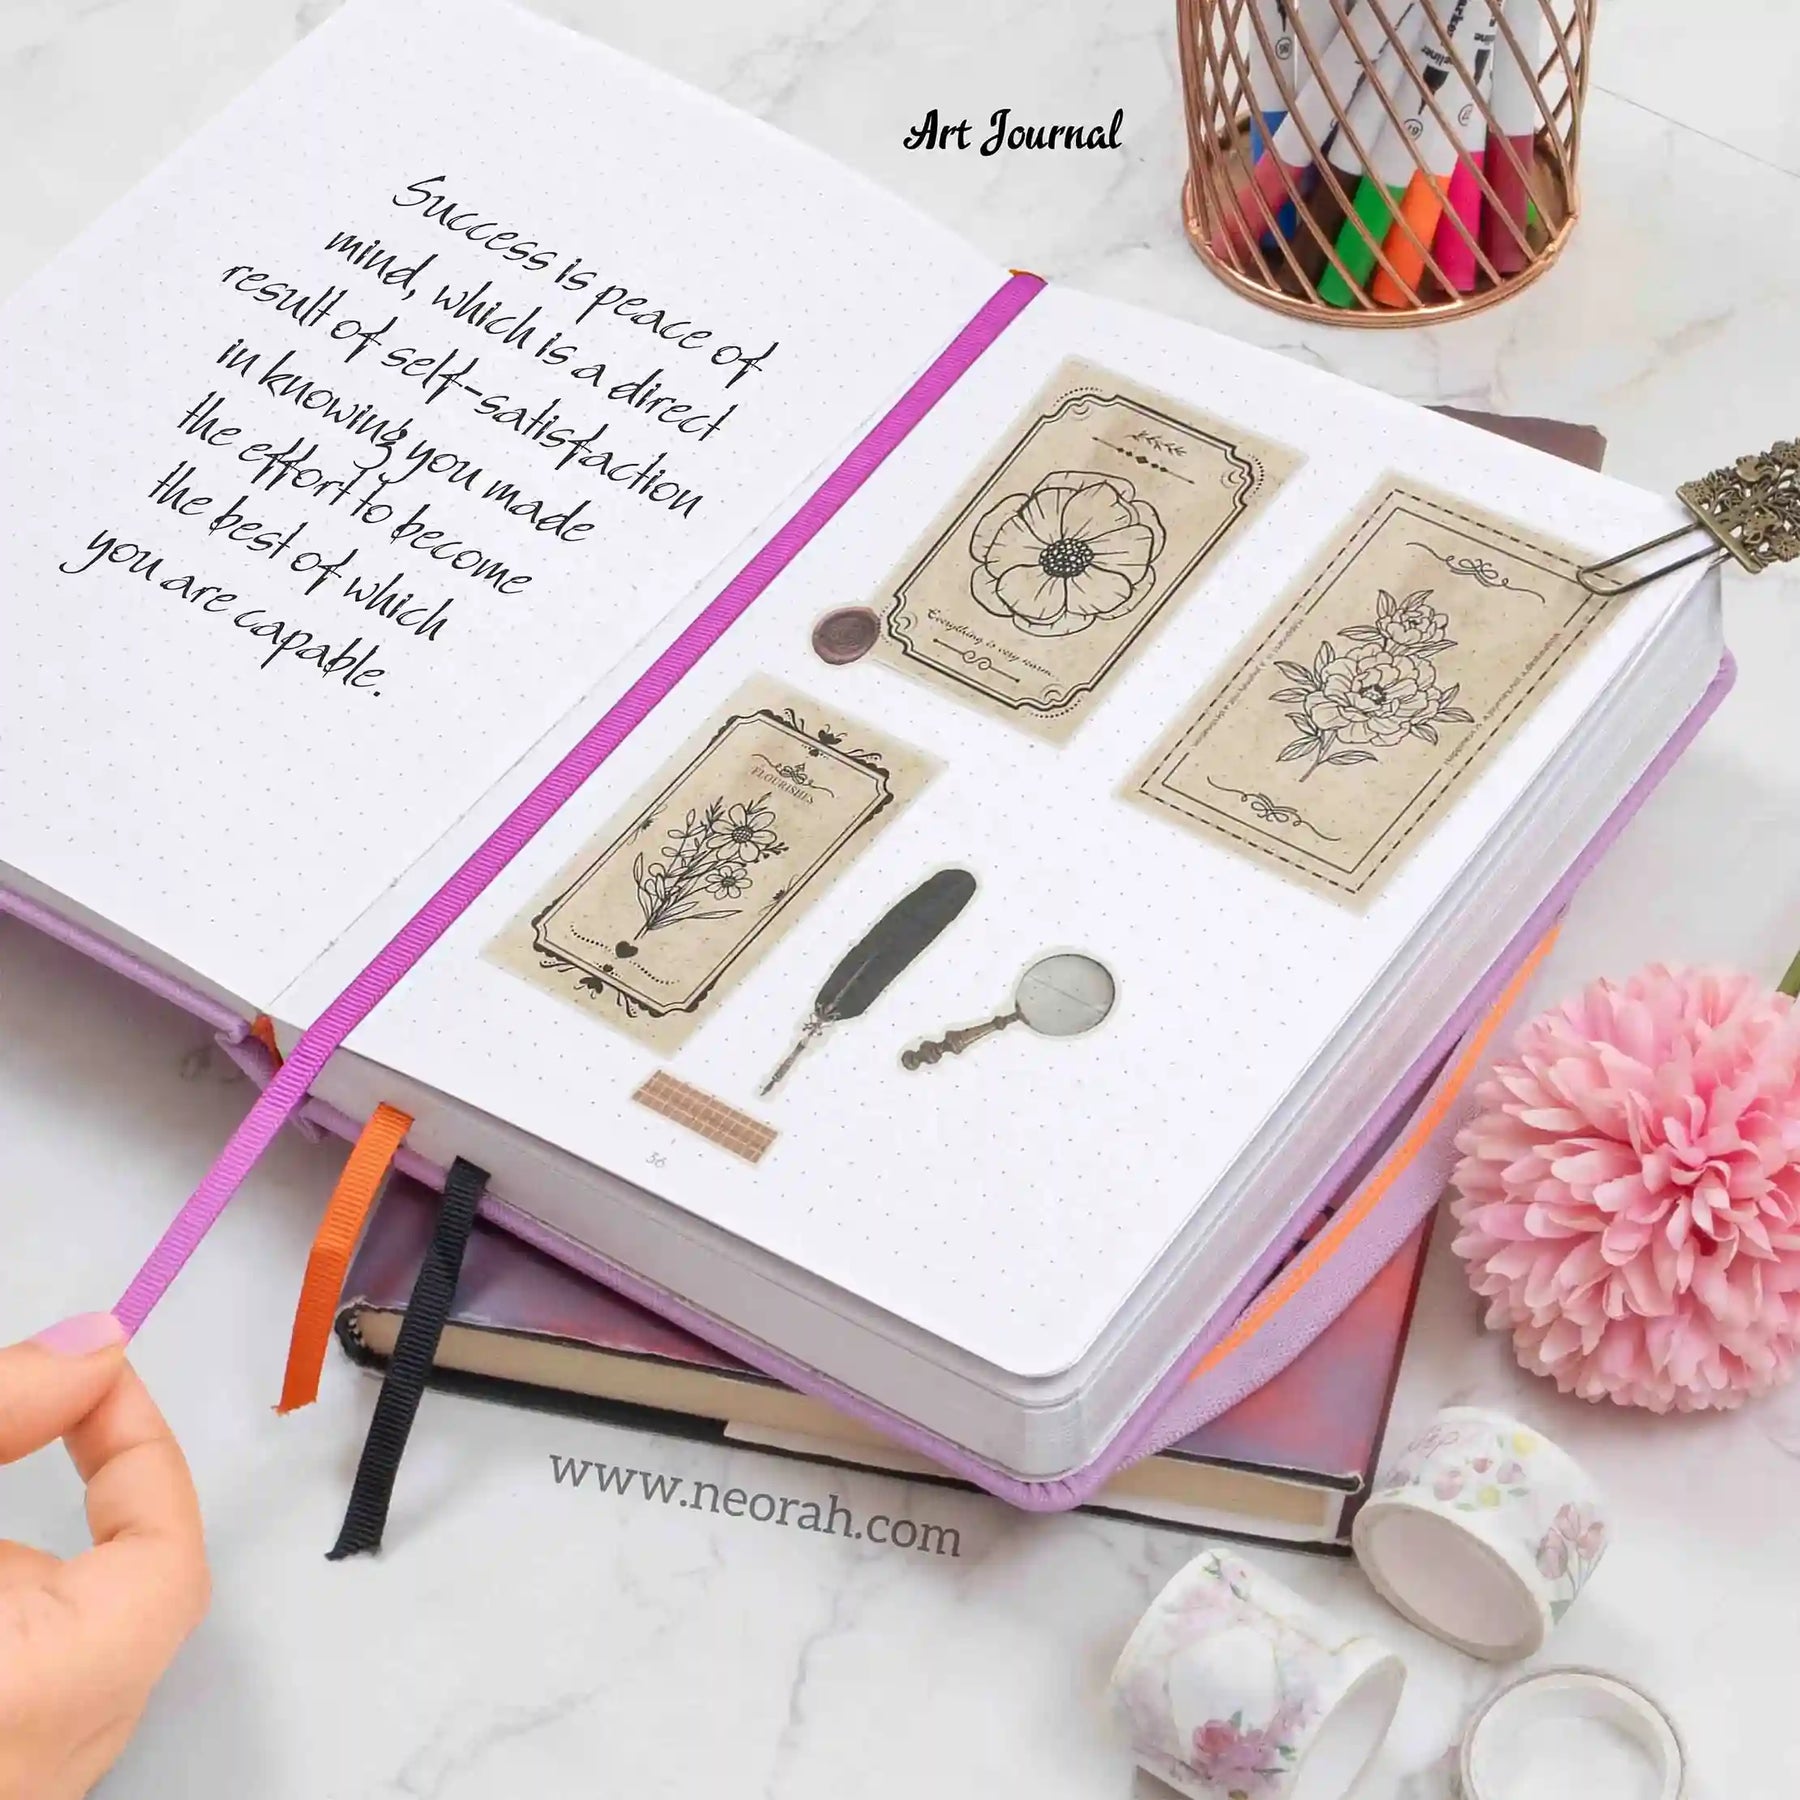 Art Journal
Success is peace of
mind, which is a direct
result of self-satisfaction
in knowing you made
the effort to become
the best of which
you are capable.
Everything is very
FLOURISHES
56
www.neorah.com